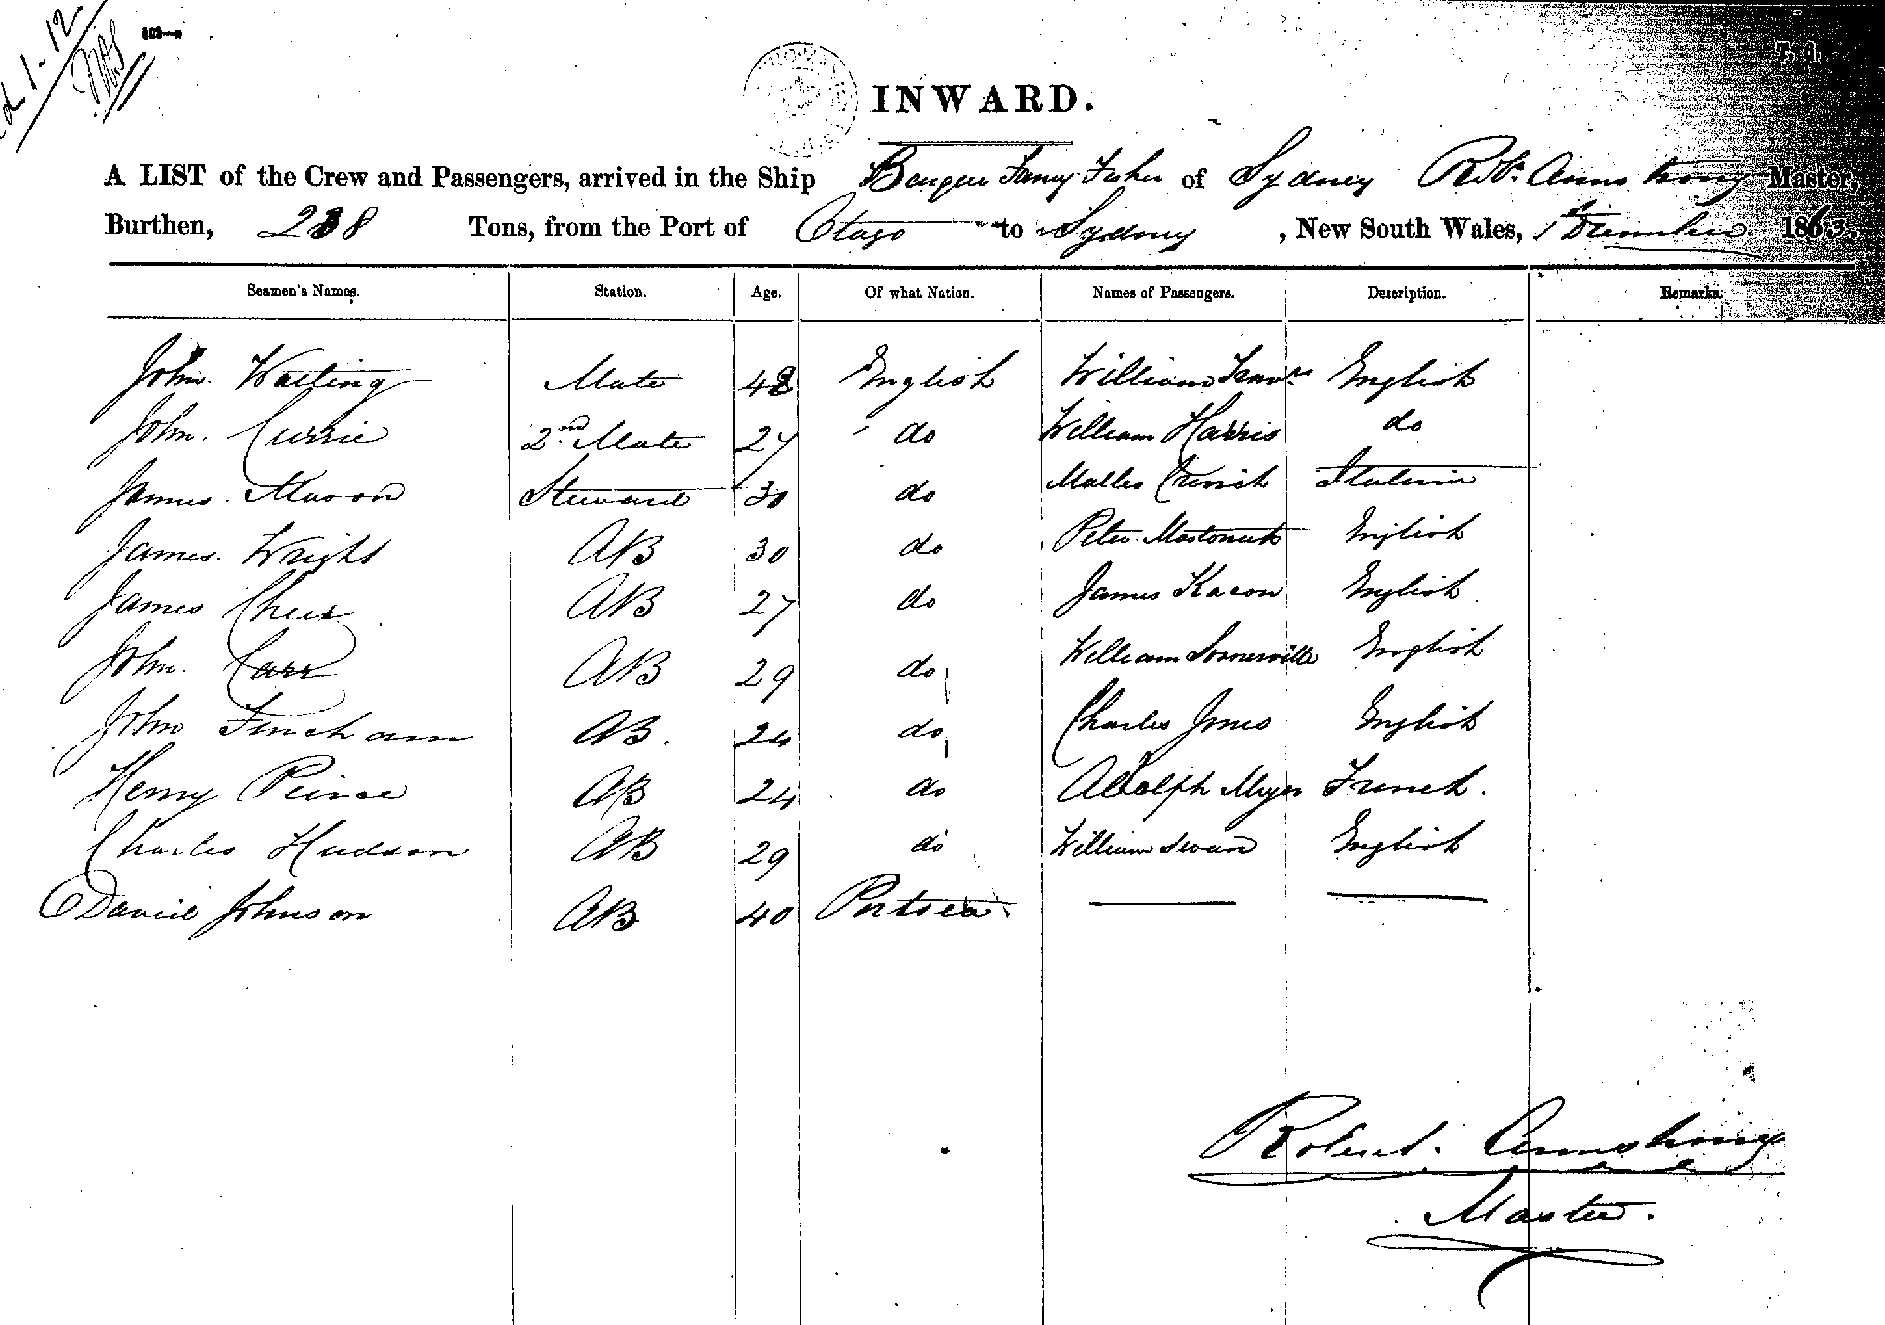 INWARD.
A LIST of the Crew and Passengers, arrived in the Ship Fanny Fisher of Sydney Robt. Armstrong Master,
Burthen, 238 Tons, from the Port of Otago to Sydney, New South Wales, 1st December 1863.
Seamen's Names. Station. Age. Of what Nation. Names of Passengers. Description. Remarks.
John Watling Mate 48 English William English
John Currie 2nd Mate 27 do William Harris do
James Mason Steward 30 do
James Wright AB 30 do Peter English
James AB 27 do James English
John Carr AB 29 do William Somerville English
John Fincham AB 24 do Charles Jones English
Henry Peirse AB 24 do Adolph Myer French.
Charles Hudson AB 29 do William Swan English
David Johnson AB 40 Portsea
Robert Armstrong
Master.